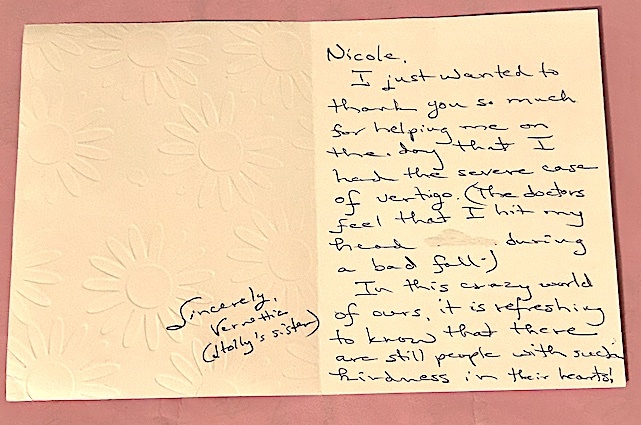 Nicole,
I just wanted to
thank you so much
for helping me on
the day that I
had the severe case
of vertigo. (The doctors
feel that I hit my
head during
a bad fall.)
In this crazy world
of ours, it is refreshing
to know that there
are still people with such
kindness in their hearts!
Sincerely,
(Holly's sister)